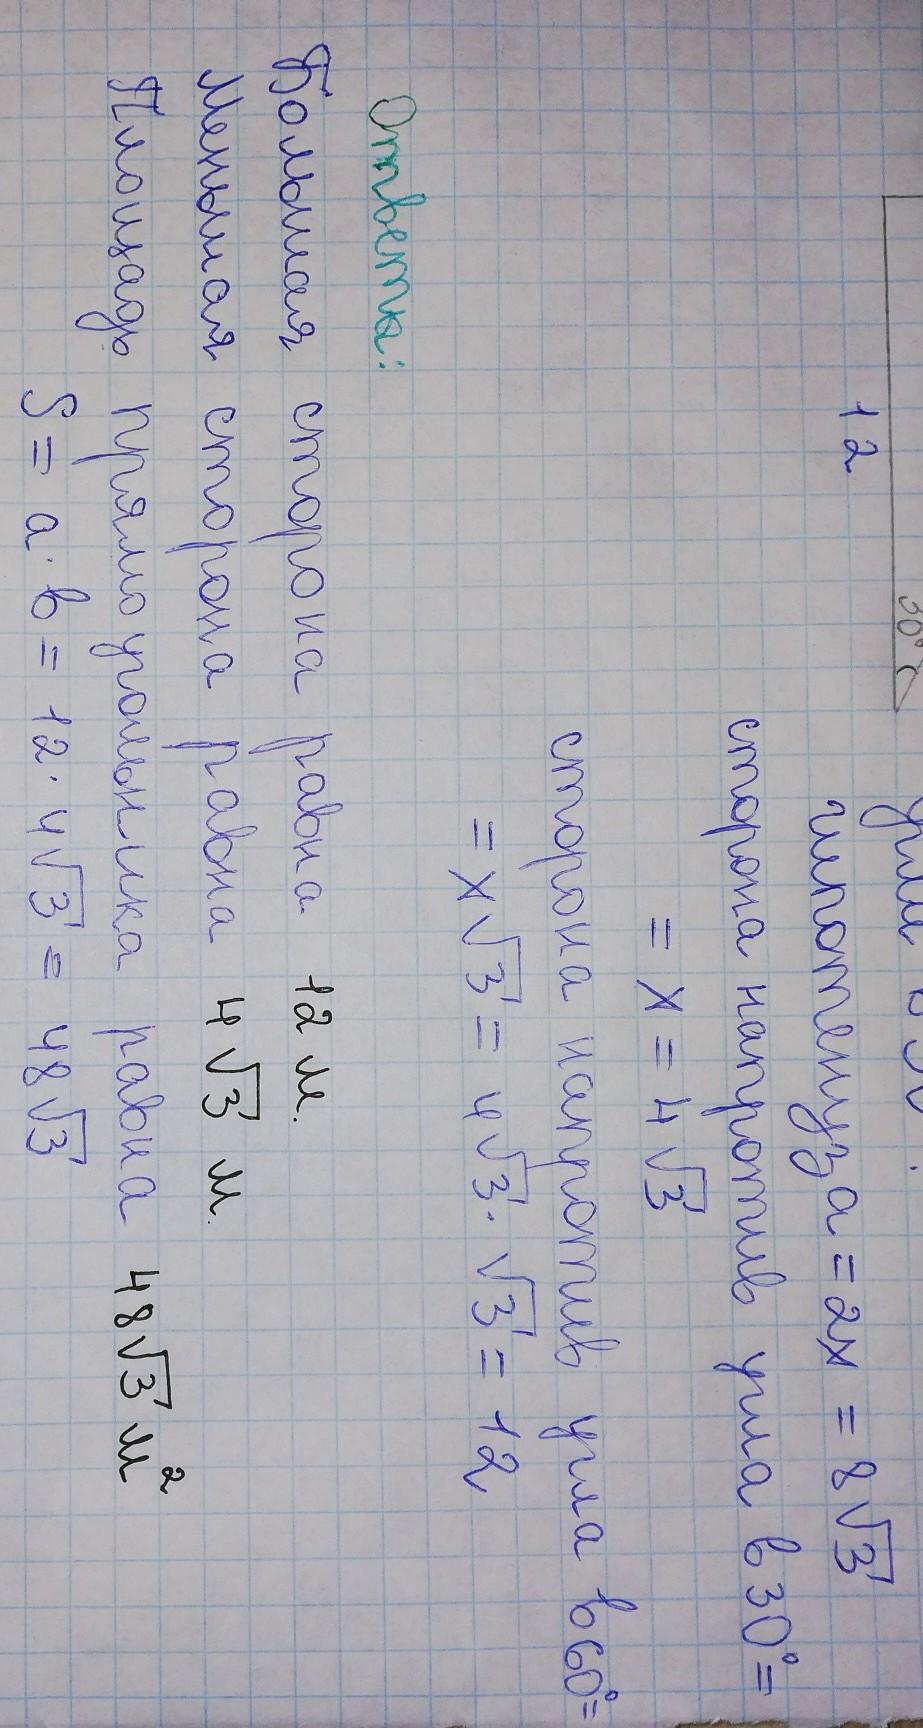 30°
12
гипотенуза = 2x = 8√3
сторона напротив угла в 30° =
= x = 4√3
сторона напротив угла в 60° =
= x√3 = 4√3 · √3 = 12
Ответы:
Большая сторона равна 12 м.
Меньшая сторона равна 4√3 м.
Площадь прямоугольника равна 48√3 м²
S = a · b = 12 · 4√3 = 48√3